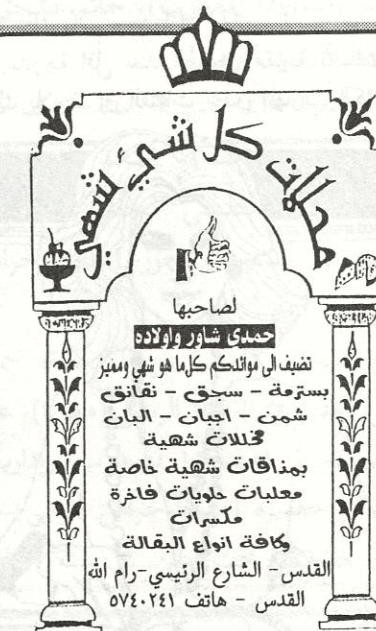 محلات كل شيئ شهي
لصاحبها
حمدي شاور واولاده
تضيف الى موائدكم كل ما هو شهي ومميز
بسترمة - سجق - نقانق
شمن - اجبان - البان
مخللات شهية
بمذاقات شهية خاصة
معلبات حلويات فاخرة
مكسرات
وكافة انواع البقالة
القدس - الشارع الرئيسي-رام الله
القدس - هاتف ٥٧٤٠٢٤١